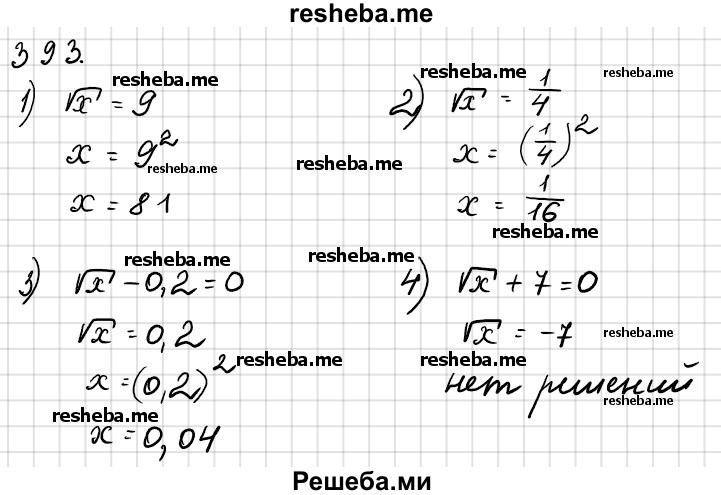 resheba.me
393.
1) √x = 9
resheba.me
x = 9²
resheba.me
x = 81
2) √x = 1/4
resheba.me
resheba.me
x = (1/4)²
resheba.me
x = 1/16
resheba.me
3) √x - 0,2 = 0
resheba.me
√x = 0,2
x = (0,2)²
resheba.me
resheba.me
x = 0,04
resheba.me
4) √x + 7 = 0
√x = -7
resheba.me
resheba.me
нет решений
resheba.me
Решеба.ми